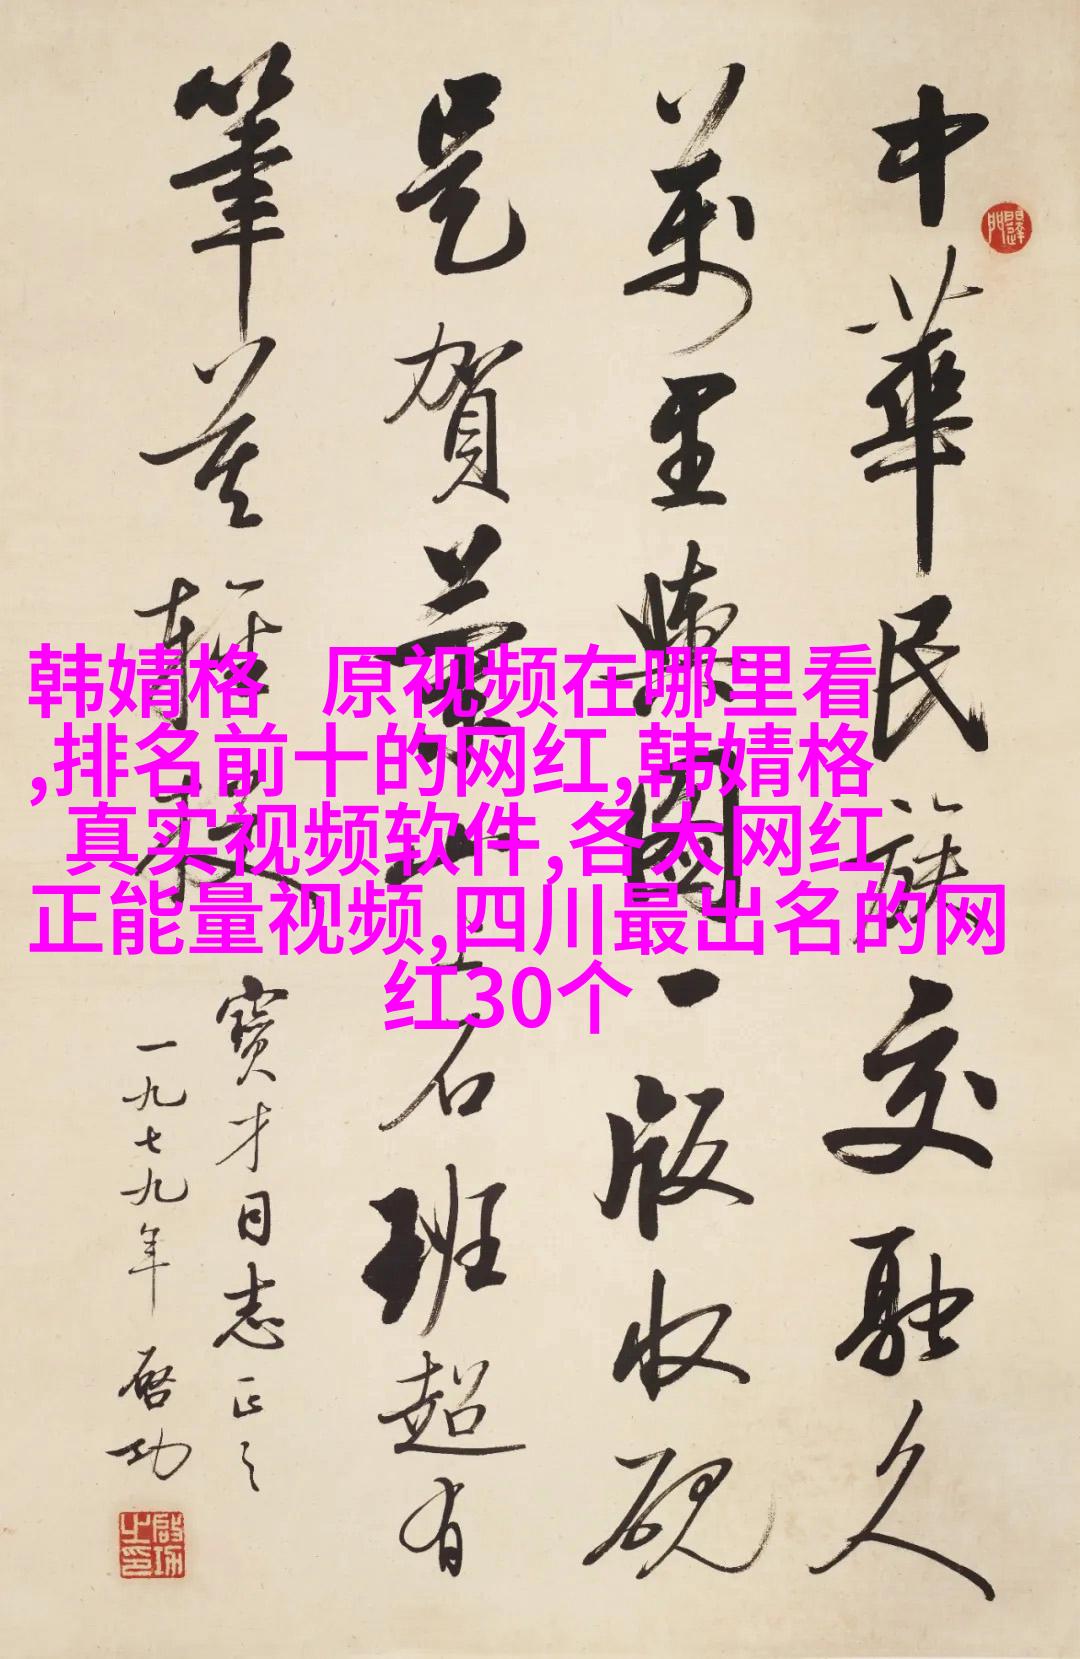 中華民族交融久
萬里輿圖一版收硯
是賀蘭山上石班超有
筆莫輕投
寶才同志正之
一九七九年 啓功
韩婧格 原视频在哪里看
,排名前十的网红,韩婧格
真实视频软件,各大网红
正能量视频,四川最出名的网
红30个